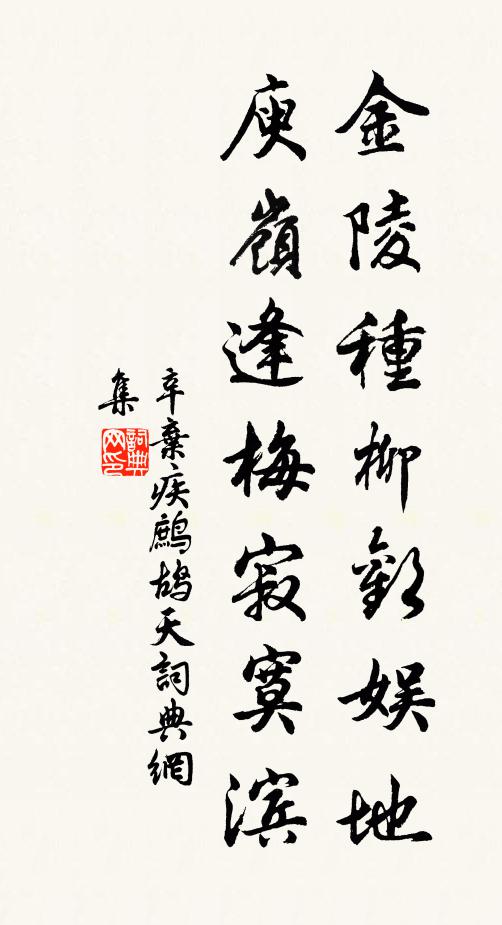 金陵種柳歡娱地
庾嶺逢梅寂寞濱
辛棄疾鷓鴣天詞典網
集
詞典
网印